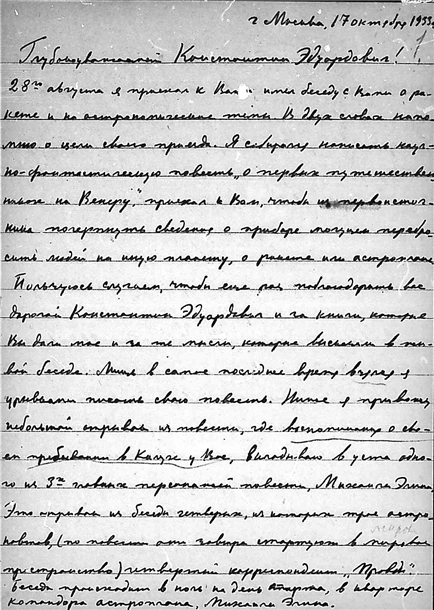 г Москва, 17 октября 1933г.
Глубокоуважаемый Константин Эдуардович!
28го августа я приехал к Вам и имел беседу с Вами о ра-
кете и на астрономические темы. В двух словах напо-
мню о цели своего приезда. Я собираюсь написать науч-
но-фантастическую повесть „о первых путешествен-
никах на Венеру", приехал к Вам, чтобы из первоисточ-
ника почерпнуть сведения о приборе могущем перебро-
сить людей на иную планету, о ракете или астроплане.
Пользуюсь случаем, чтобы еще раз поблагодарить вас
дорогой Константин Эдуардович и за книги, которые
Вы дали мне и за те мысли, которые высказали в
вой беседе. Лишь в самое последнее время взялся я
урывками писать свою повесть. Ниже я привожу
небольшой отрывок из повести, где воспоминания о сво-
ем пребывании в Калуге у Вас, вкладываю в уста одно-
го из 3х главных персонажей повести, Михаила Элина.
Это отрывок из беседы четверых, из которых трое астро-
навтов, (по повести они завтра стартуют в мировое
пространство) четвертый корреспондент „Правды".
Беседа происходит в ночь на день старта, в квартире
командора астроплана, Михаила Элина.